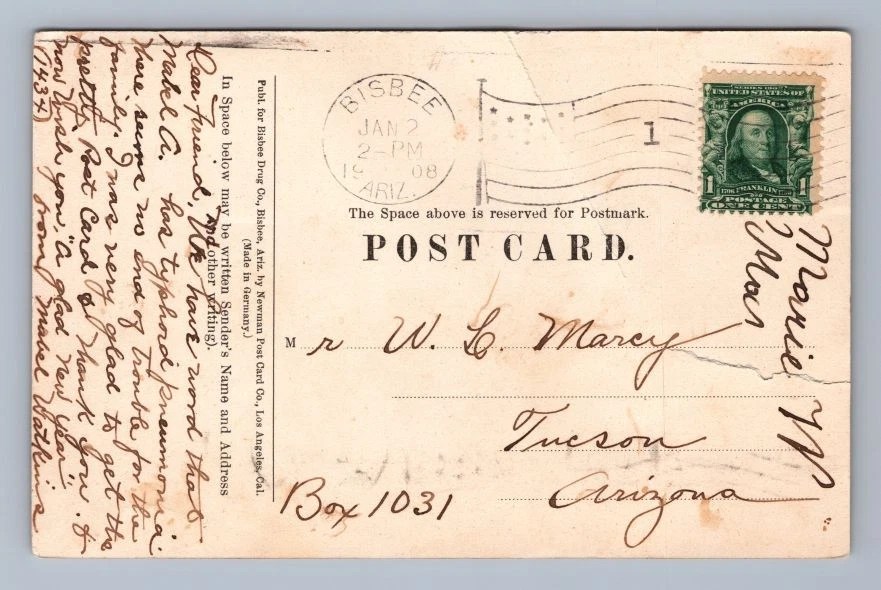 BISBEE
JAN 2
2-PM
1908
ARIZ.
1
SERIES 1902
UNITED STATES OF
AMERICA
1706 FRANKLIN 1790
1 1
POSTAGE
ONE CENT
The Space above is reserved for Postmark.
POST CARD.
Mr W. L. Marcy
Tucson
Arizona
Box 1031
Marie W
Mar
Publ. for Bisbee Drug Co., Bisbee, Ariz. by Newman Post Card Co., Los Angeles, Cal.
(Made in Germany.)
In Space below may be written Sender's Name and Address
And other writing).
Dear friend, We have word that
Mabel A. has typhoid pneumonia
There seems no end of trouble for the
family. I was very glad to get the
pretty Post Card & thank you. &
now wish you "a glad new year"
(1434) from Mabel Watkins